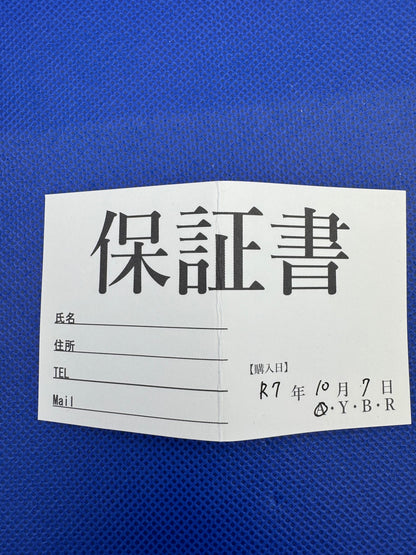 保証書
氏名
住所
TEL
Mail
【購入日】
R7年10月7日
Ⓐ・Y・B・R